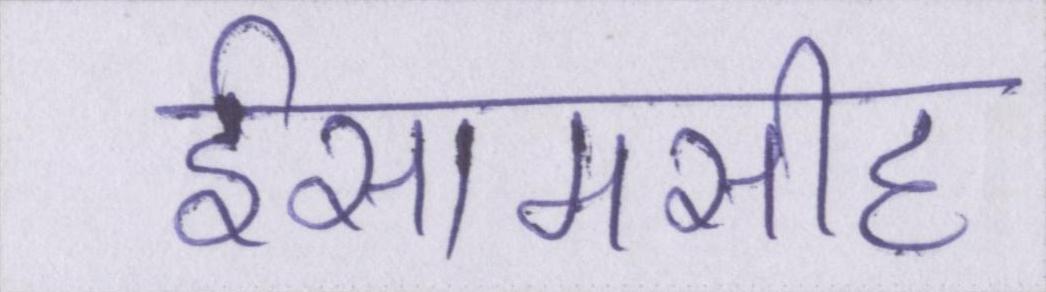 ईसामसीह